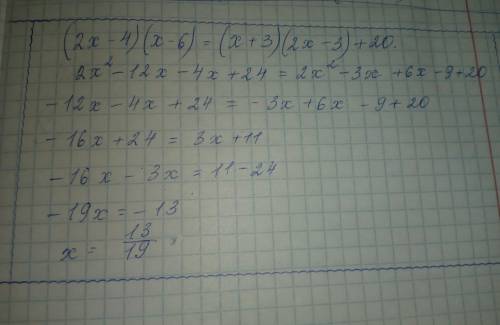 (2x-4)(x-6) = (x+3)(2x-3)+20.
2x² - 12x - 4x + 24 = 2x² - 3x + 6x - 9 + 20
- 12x - 4x + 24 = - 3x + 6x - 9 + 20
- 16x + 24 = 3x + 11
- 16x - 3x = 11 - 24
- 19x = - 13
x = 13/19